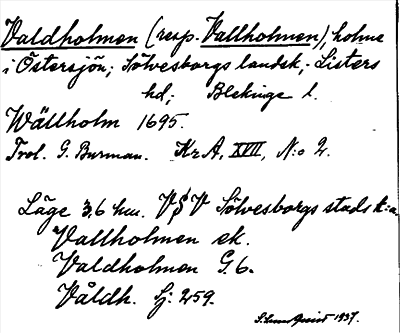 Valdholmen (resp. Vallholmen), holme
i Östersjön; Sölvesborgs landsk, Listers
hd; Blekinge l.
Wällholm 1695.
Trol. G. Burman. Kr A, XVII, N:o 2.
Läge 3,6 km. VSV Sölvesborgs stads k:a
Vallholmen ek.
Valdholmen G. 6.
Våldh. Hj. 259.
1937.